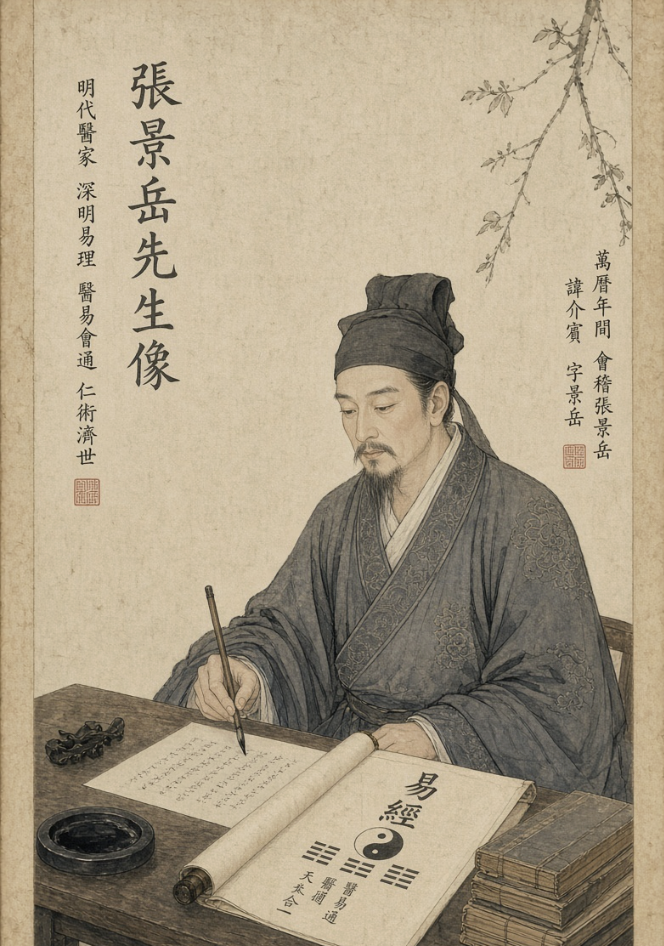 萬曆年間 會稽張景岳
諱介賓 字景岳
張景岳先生像
明代醫家 深明易理 醫易會通 仁術濟世
易經
醫易通
天 合一